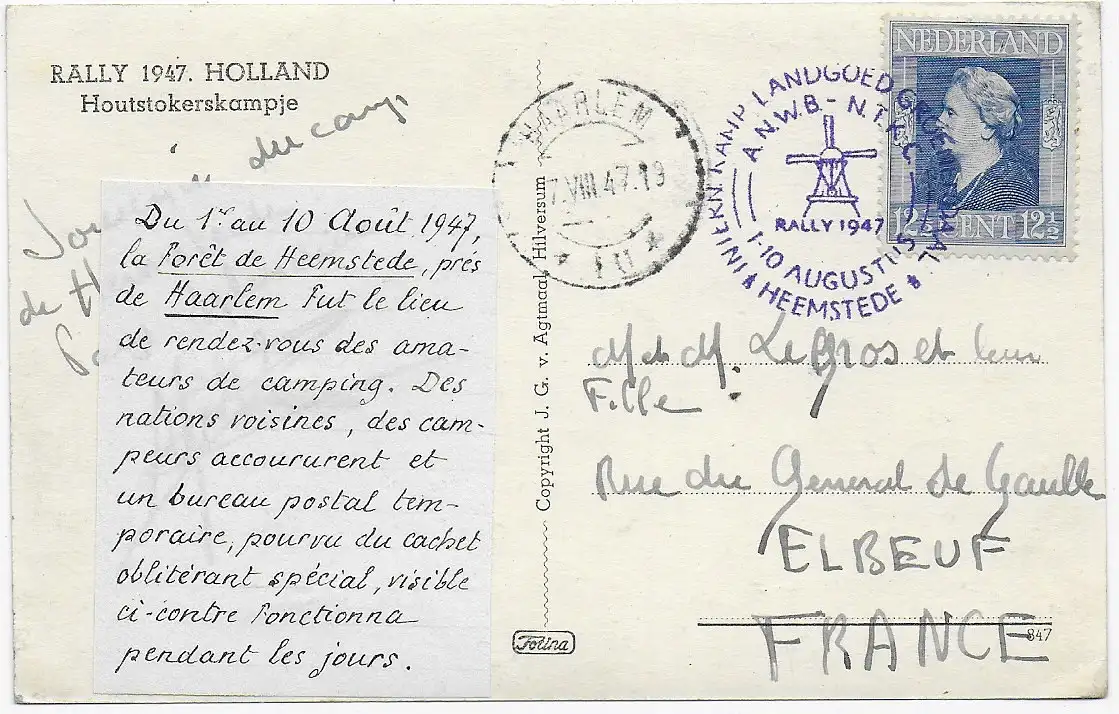 RALLY 1947. HOLLAND
Houtstokerskampje
du camp
de
Du 1er au 10 Août 1947,
la Forêt de Heemstede, près
de Haarlem fut le lieu
de rendez-vous des ama-
teurs de camping. Des
nations voisines, des cam-
peurs accoururent et
un bureau postal tem-
poraire, pourvu du cachet
oblitérant spécial, visible
ci-contre fonctionna
pendant les jours.
Copyright J. G. v. Agtmaal, Hilversum
Fotina
HAARLEM
7.VIII.47.19
INTERN. KAMP LANDGOED GROENENDAAL
A.N.W.B.- N.T.K.C.
RALLY 1947
1-10 AUGUSTUS
HEEMSTEDE
NEDERLAND
12½ CENT 12½
M et M. Legros et leur
Fille
Rue du General de Gaulle
ELBEUF
FRANCE
847